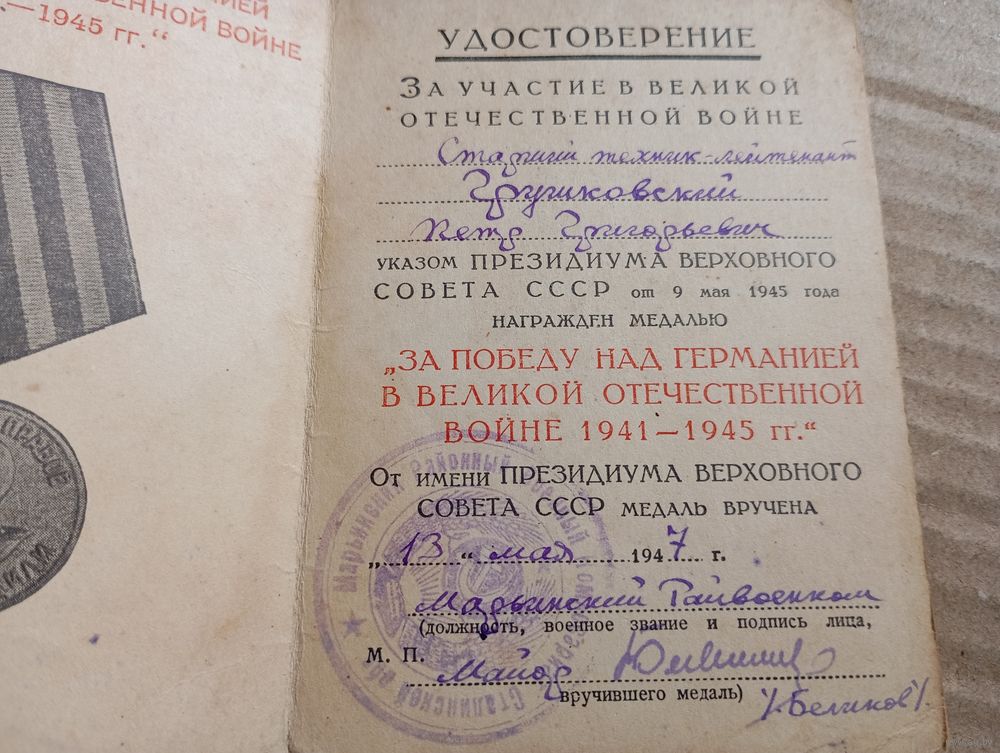 ГЕРМАНИЕЙ
ОТЕЧЕСТВЕННОЙ ВОЙНЕ
—1945 гг.“
ПРАВОЕ
УДОСТОВЕРЕНИЕ
ЗА УЧАСТИЕ В ВЕЛИКОЙ
ОТЕЧЕСТВЕННОЙ ВОЙНЕ
Старший техник-лейтенант
Грушковский
Петр Григорьевич
УКАЗОМ ПРЕЗИДИУМА ВЕРХОВНОГО
СОВЕТА СССР от 9 мая 1945 года
НАГРАЖДЕН МЕДАЛЬЮ
„ЗА ПОБЕДУ НАД ГЕРМАНИЕЙ
В ВЕЛИКОЙ ОТЕЧЕСТВЕННОЙ
ВОЙНЕ 1941—1945 гг.“
От имени ПРЕЗИДИУМА ВЕРХОВНОГО
СОВЕТА СССР МЕДАЛЬ ВРУЧЕНА
„13“ мая 1947 г.
Марьинский Райвоенком
(должность, военное звание и подпись лица,
М. П. Майор
вручившего медаль) /Беликов/.
Марьинский районный военный
Сталинской